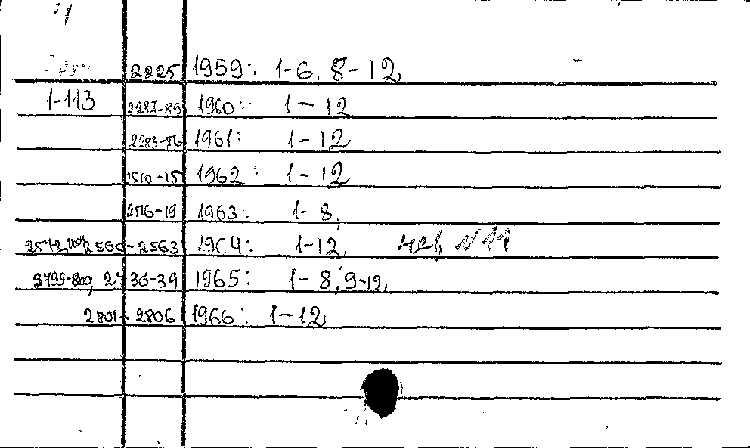 2225 1959: 1-6, 8-12
1-113 2287-89 1960: 1-12
1961: 1-12
1510-15 1962: 1-12
2516-19 1963: 1-8,
2560-2563 1964: 1-12,
2736-39 1965: 1-8, 9-12,
2801-2806 1966: 1-12,